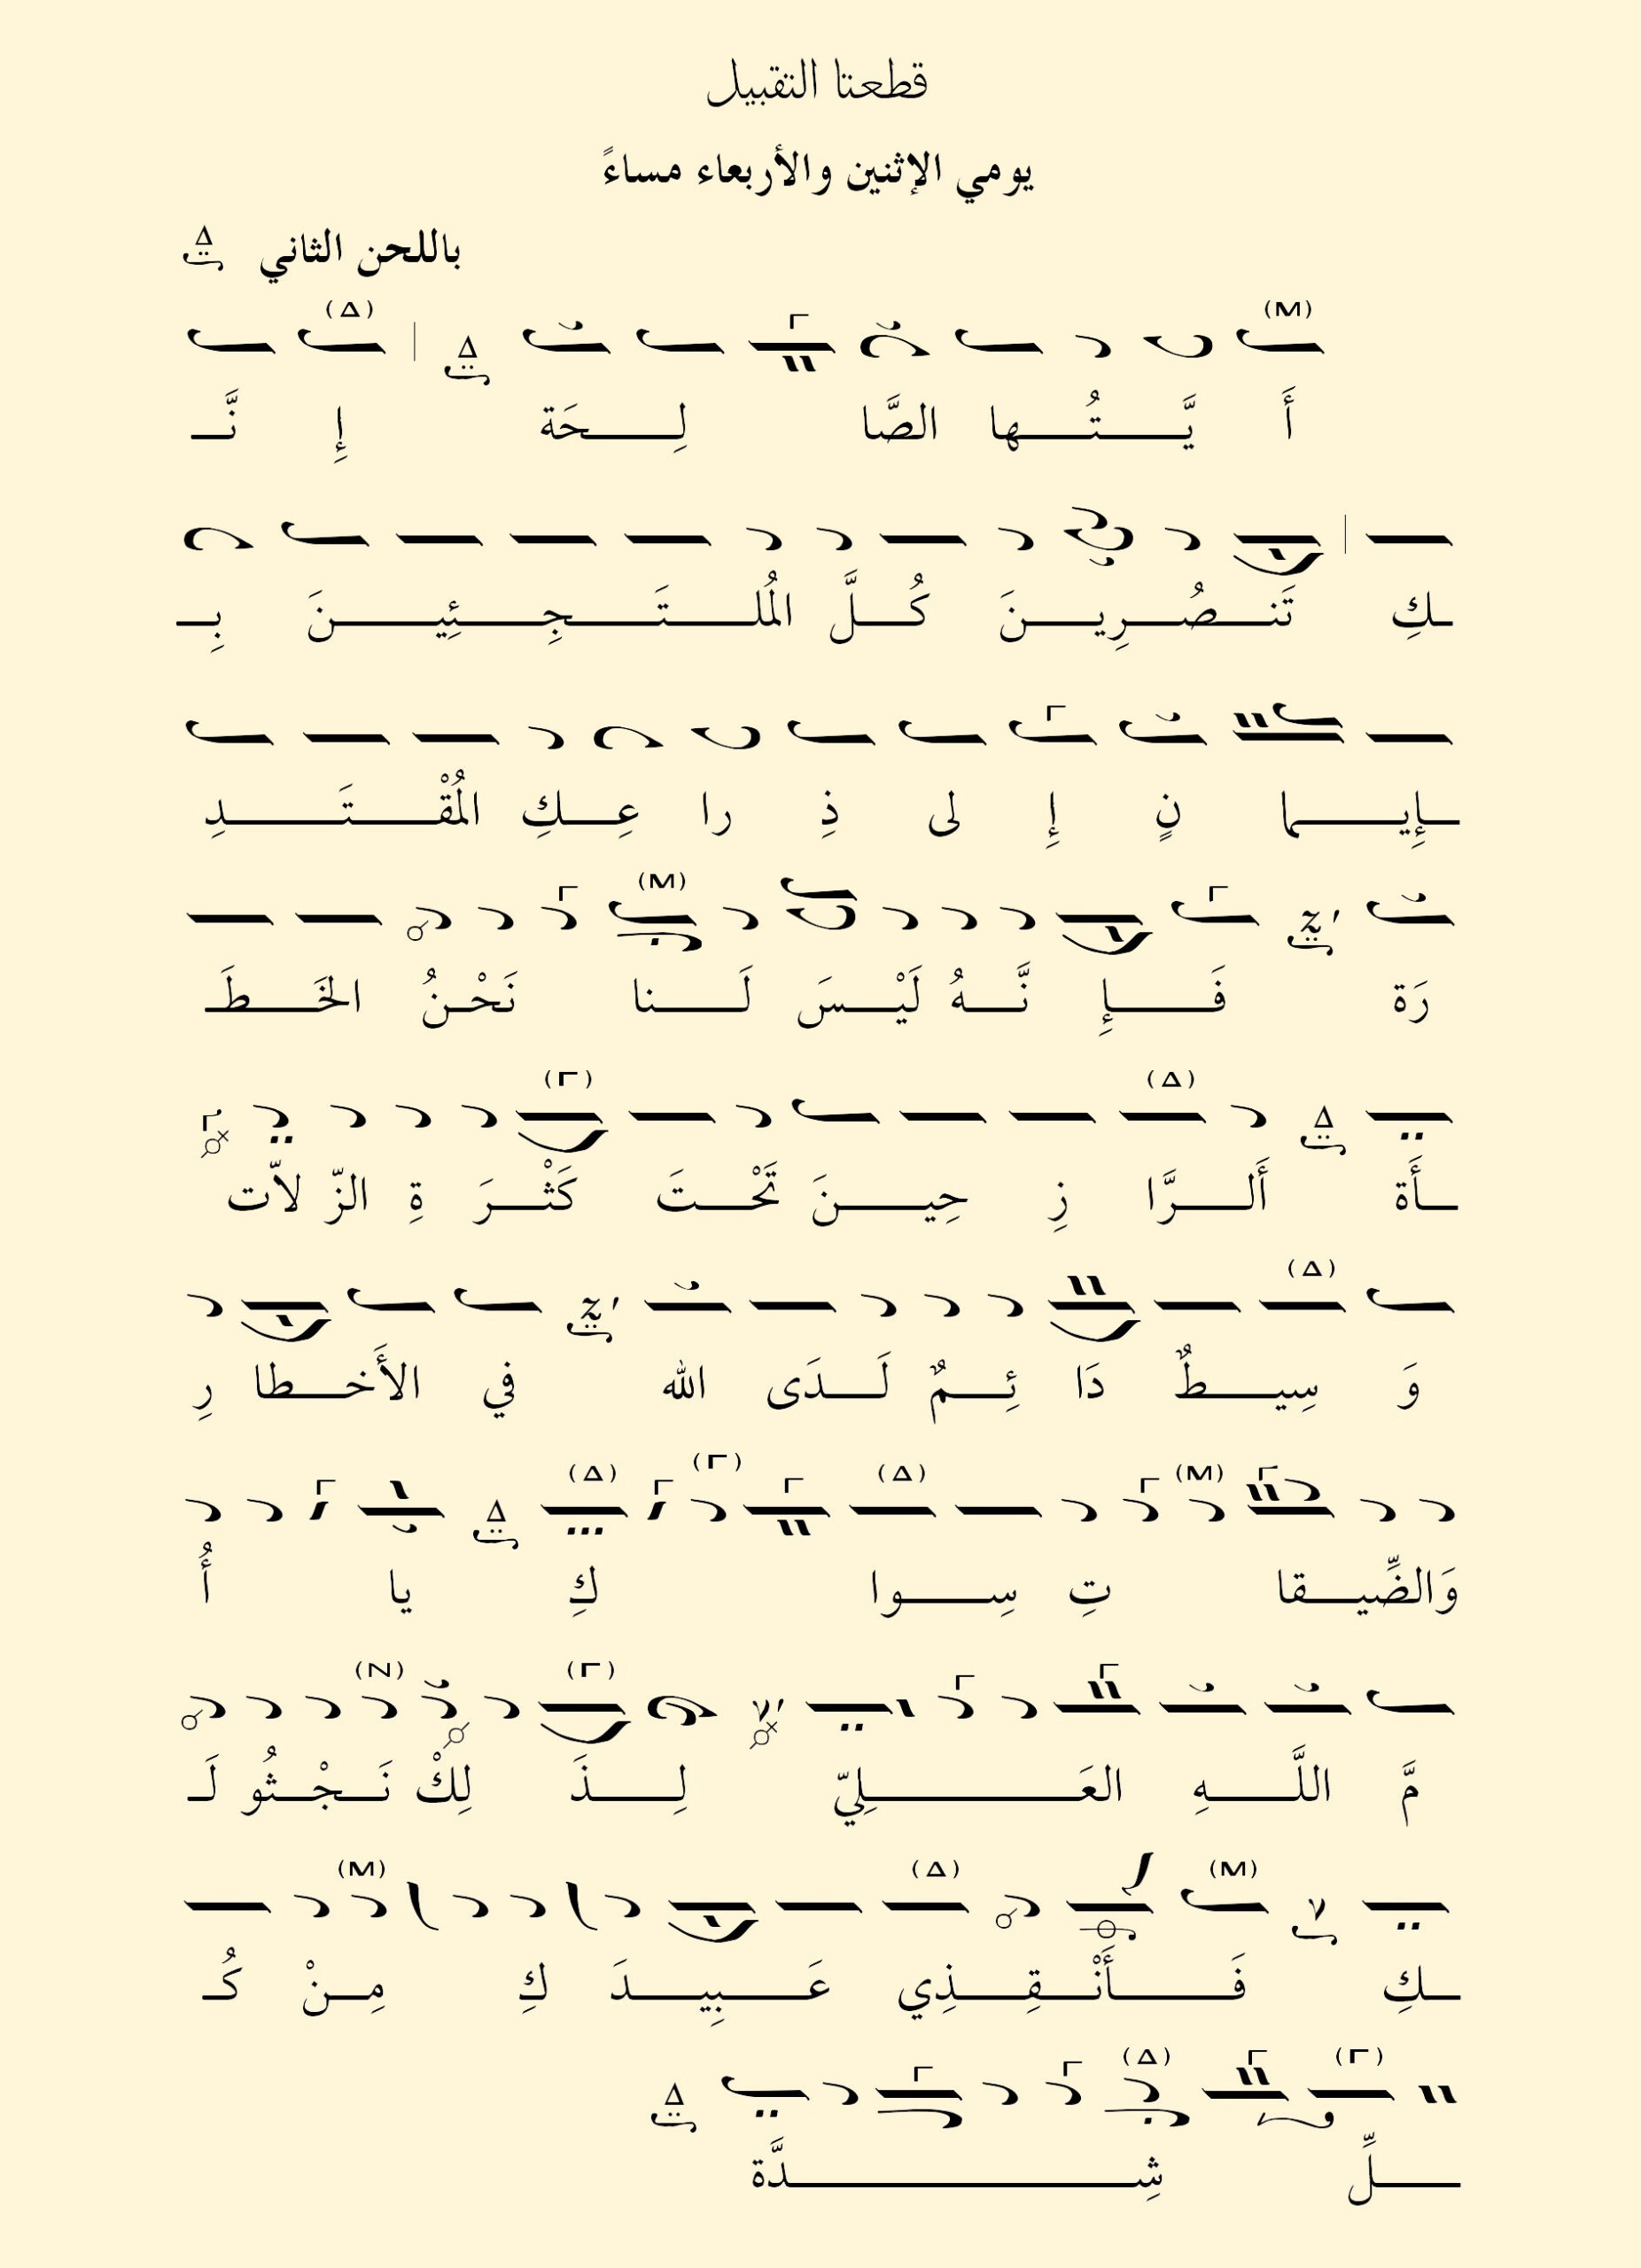 قطعتا التقبيل
يومي الإثنين والأربعاء مساءً
باللحن الثاني
أَ يَّـتُـها الصَّا لِـحَة إِ نَّـ
ـكِ تَنـصُـرِيـنَ كُـلَّ المُلـتَـجِـئِيـنَ بِـ
ـإِيـما نٍ إِ لى ذِ را عِـكِ المُقْـتَـدِ
رَة فَـإِ نَّـهُ لَيْـسَ لَـنا نَحْـنُ الخَـطَـ
ـأَة أَلـرَّا زِ حِيـنَ تَحْـتَ كَثْـرَ ةِ الزّ لاّت
وَ سِيـطٌ دَا ئِـمٌ لَـدَى الله في الأَخـطا رِ
وَالضِّيـقا تِ سِـوا كِ يا أُ
مَّ اللَّـهِ العَـلِيّ لِـذَ لِكْ نَـجْـثُو لَـ
ـكِ فَـأَنْـقِـذِي عَـبِيـدَ كِ مِـنْ كُـ
ـلِّ شِـدَّة